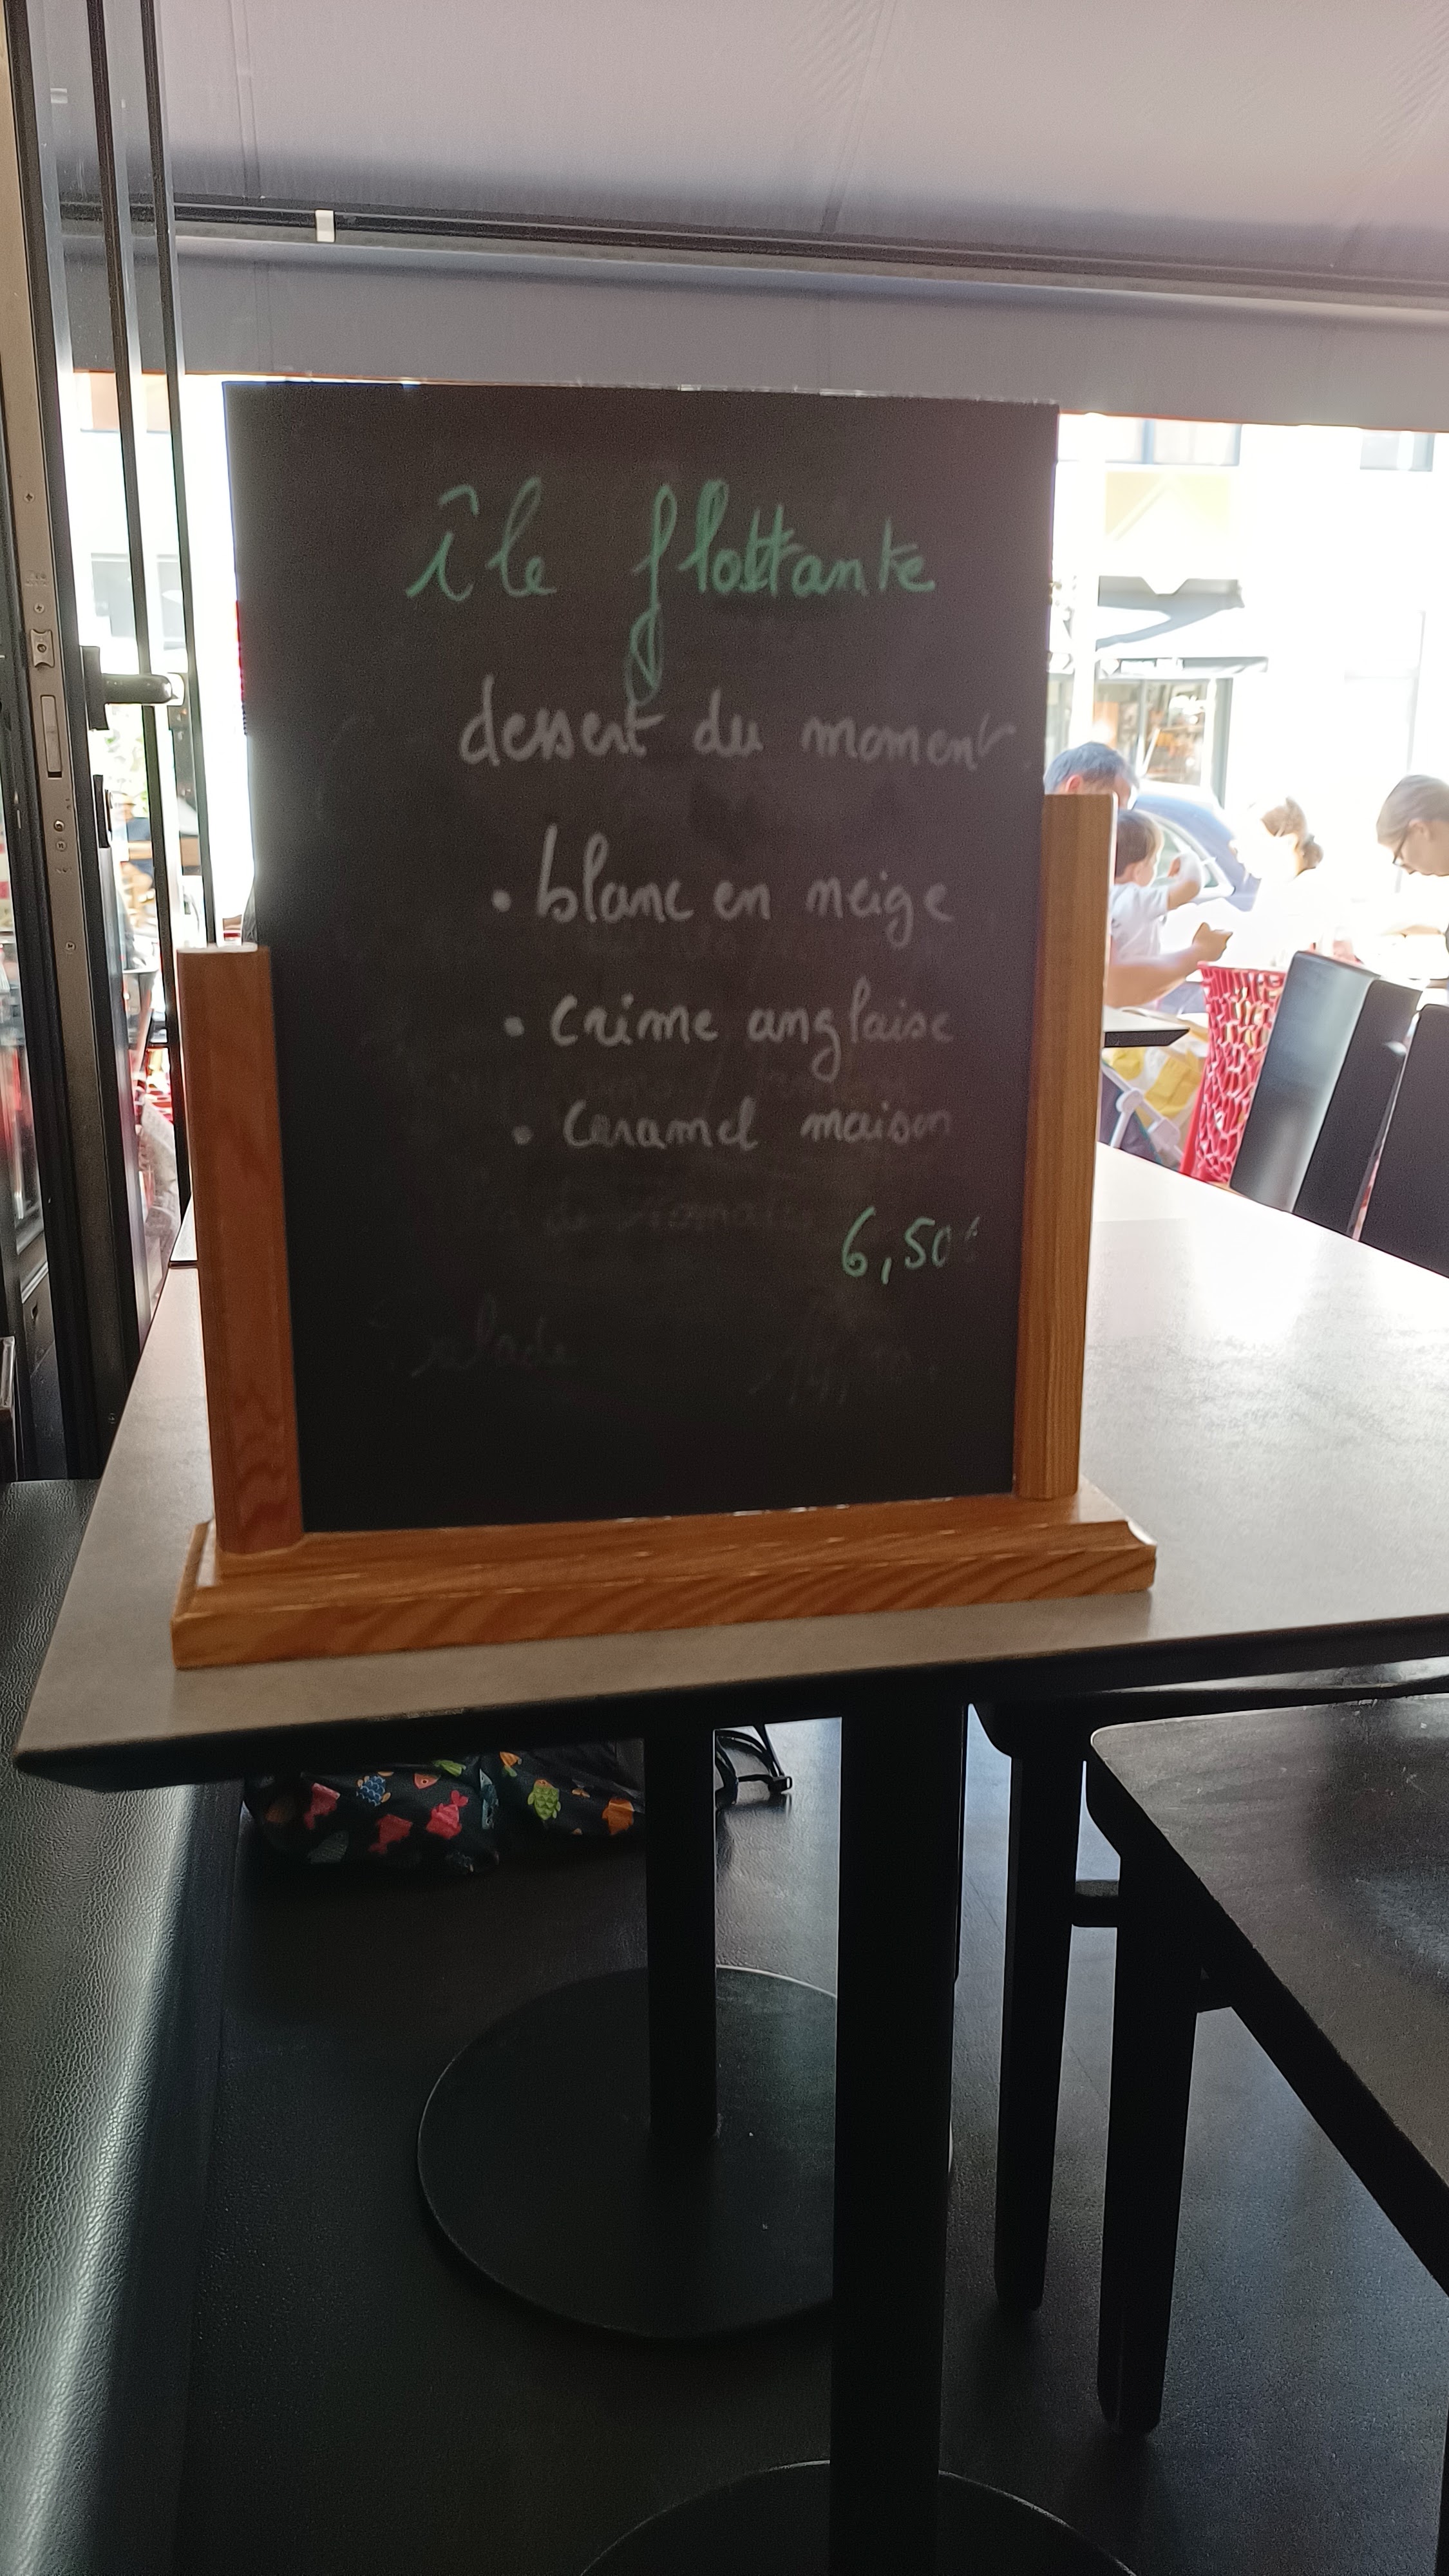 île flottante
dessert du moment
• blanc en neige
• crème anglaise
• caramel maison
6,50€